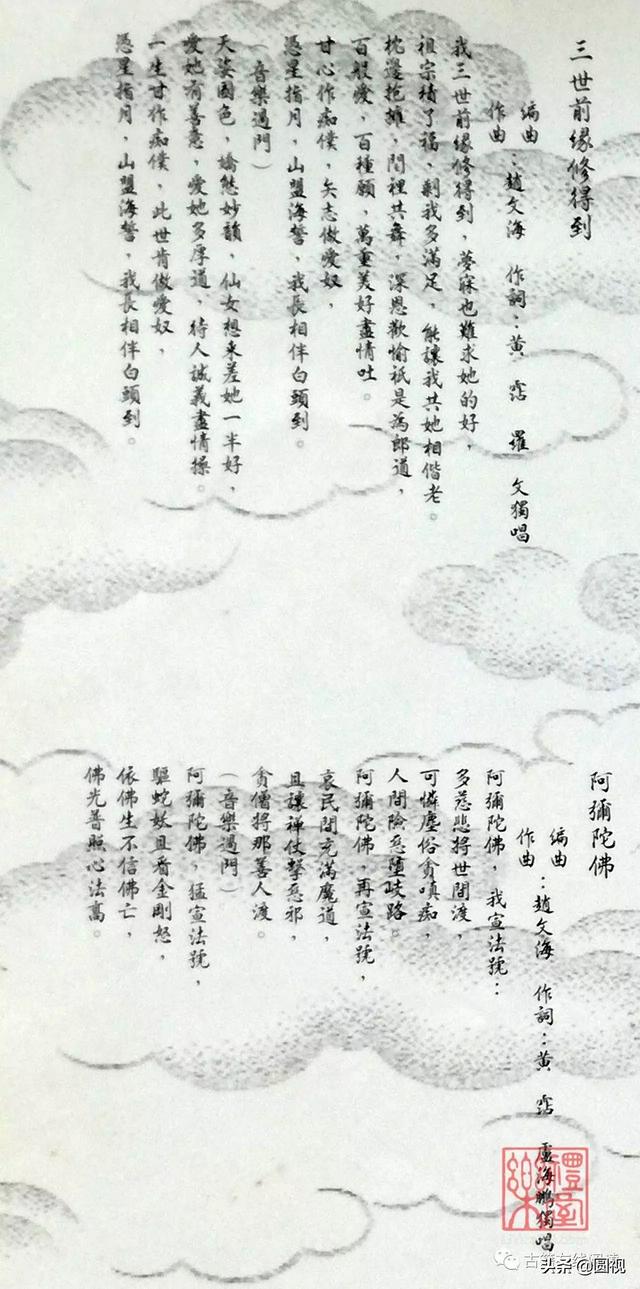 三世前緣修得到
編曲
作曲：趙文海　作詞：黃　霑　羅　文獨唱
我三世前緣修得到，夢寐也難求她的好，
祖宗積了福，剩我多滿足，能讓我共她相偕老。
枕邊抱擁，間裡共舞，深恩歡愉祇是為郎道，
百般愛，百種願，萬重美好盡情吐。
甘心作痴僕，矢志做愛奴，
憑星指月，山盟海誓，我長相伴白頭到。
（音樂過門）
天姿國色，嬌態妙韻，仙女想來差她一半好，
愛她有善意，愛她多厚道，待人誠義盡情操。
一生甘作痴僕，此世肯做愛奴，
憑星指月，山盟海誓，我長相伴白頭到。
阿彌陀佛
編曲
作曲：趙文海　作詞：黃　霑　盧海鵬獨唱
阿彌陀佛，我宣法號：
多慈悲將世間渡，
可憐塵俗貪嗔痴，
人間險惡墮歧路。
阿彌陀佛，再宣法號，
哀民間充滿魔道，
且讓禪仗擊惡邪，
貧僧將那善人渡。
（音樂過門）
阿彌陀佛，猛宣法號，
驅蛇妖且看金剛怒，
依佛生不信佛亡，
佛光普照心法高。
禮樂
头条 @圆视